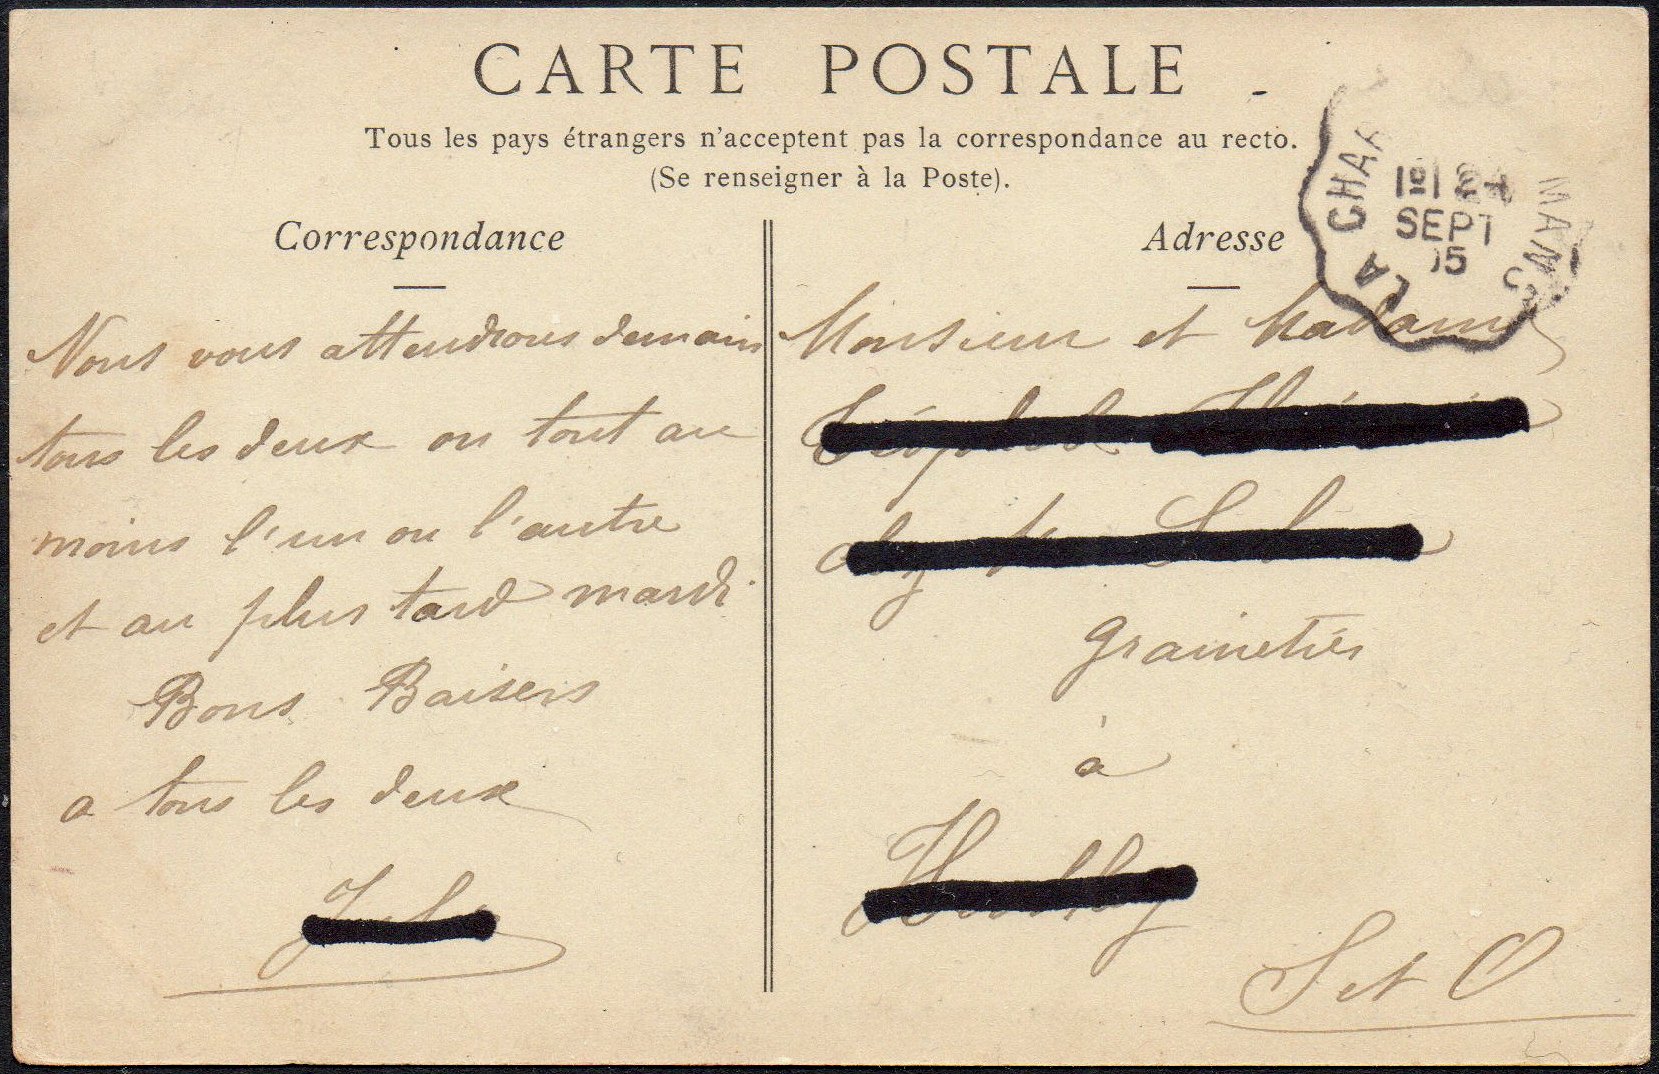 CARTE POSTALE
Tous les pays étrangers n'acceptent pas la correspondance au recto.
(Se renseigner à la Poste).
Correspondance
Nous vous attendrons demain
tous les deux ou tout au
moins l'un ou l'autre
et au plus tard mardi
Bons Baisers
a tous les deux
Adresse
Monsieur et Madame
grainetiers
à
S et O
LA CHAR
MANS
SEPT
05